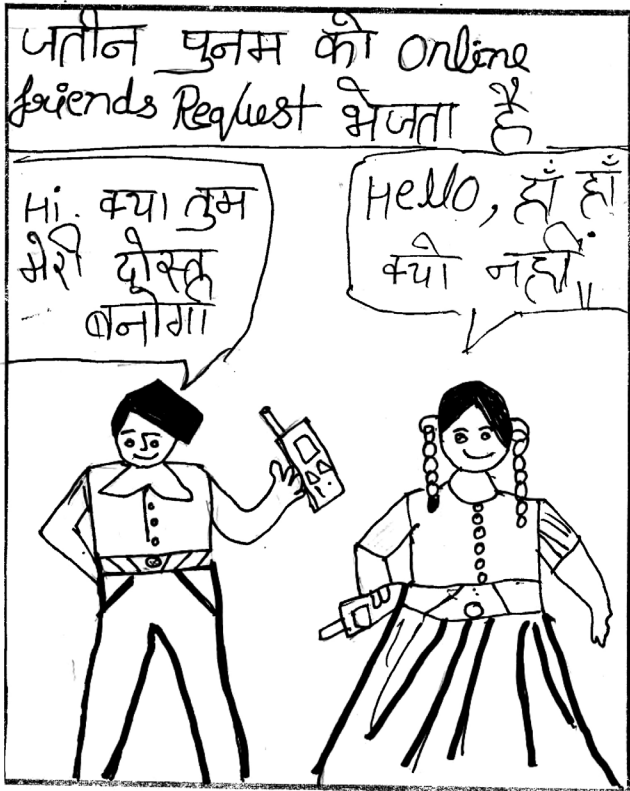 जतीन पुनम को Online
friends Request भेजता है
Hi. क्या तुम
मेरी दोस्त
बनोगा
Hello, हाँ हाँ
क्यो नहीं,,